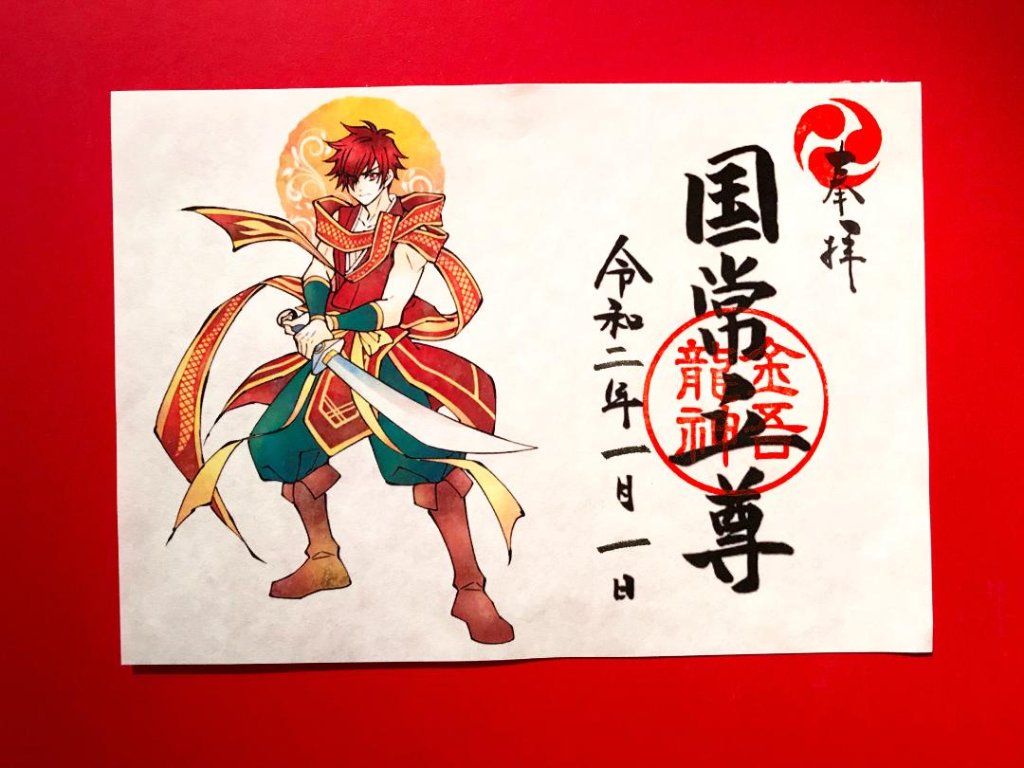 奉拝
国常立尊
金吾
龍神
令和二年一月一日